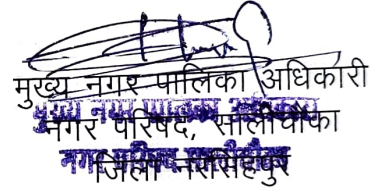 मुख्य नगर पालिका अधिकारी
मुख्य नगर पालिका अधिकारी
नगर परिषद, सालीचौका
नगर परिषद सालीचौका
जिला नरसिंहपुर